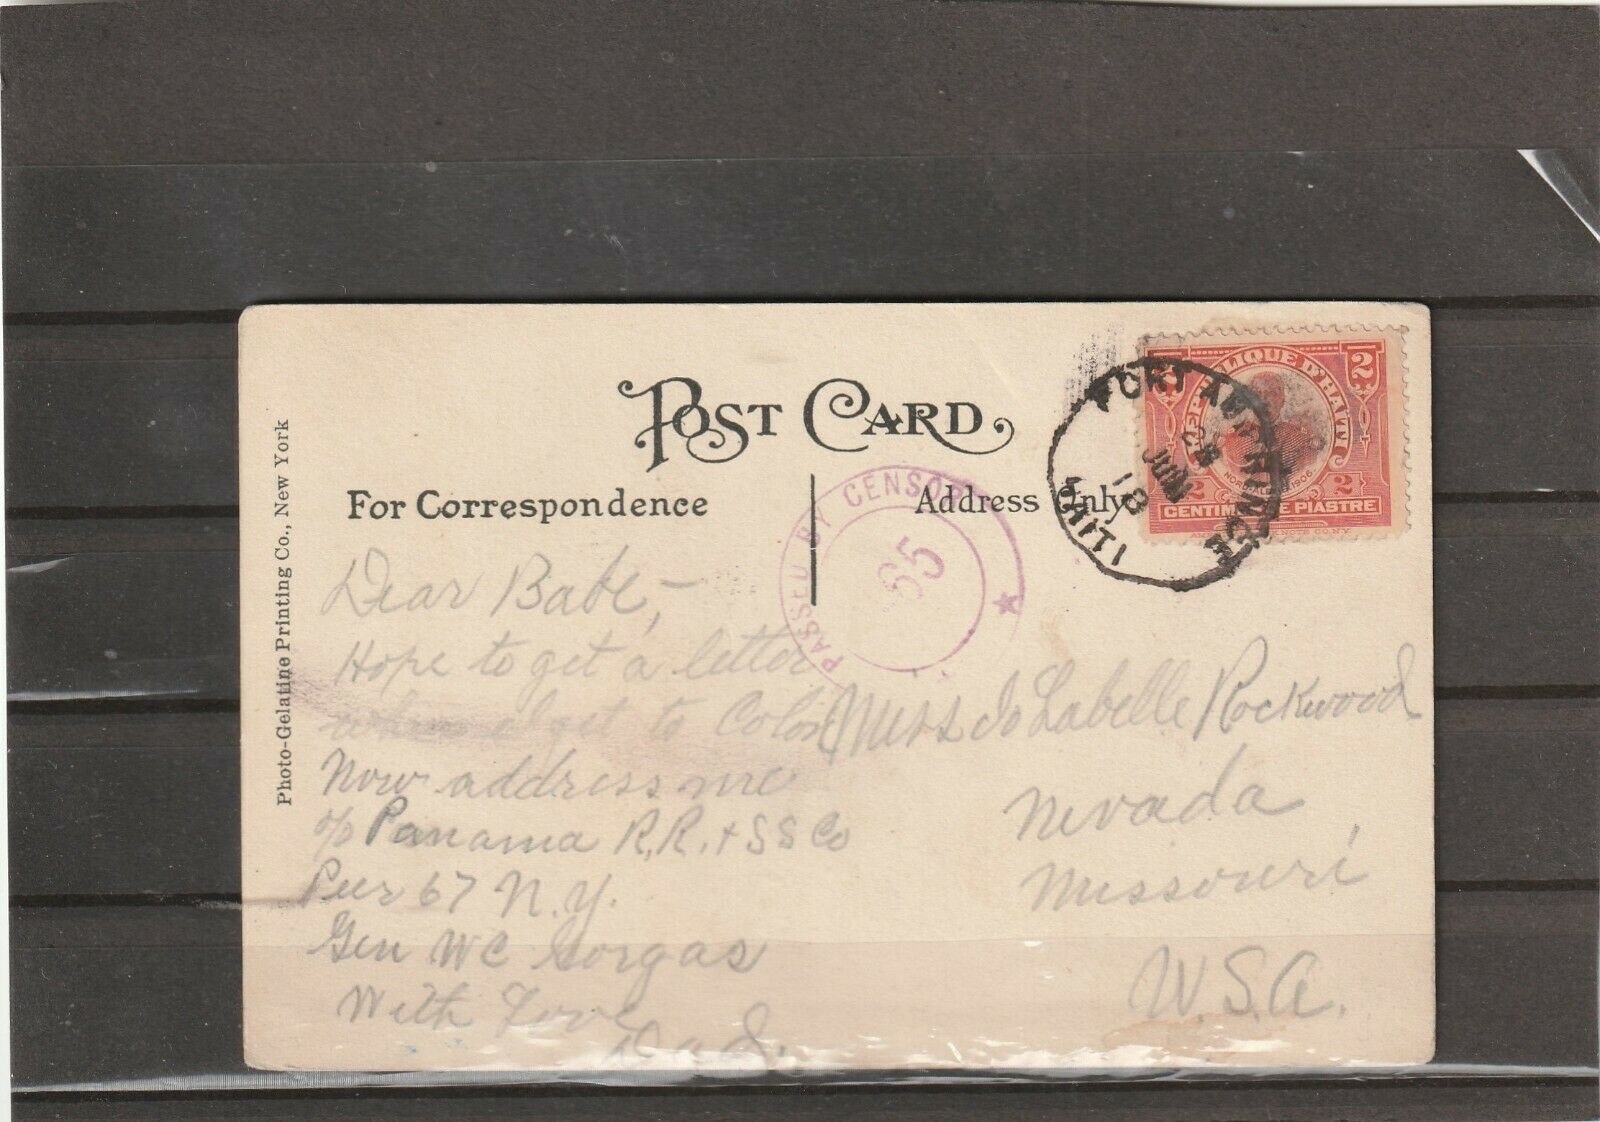 POST CARD
For Correspondence
Address Only
Photo-Gelatine Printing Co., New York
PASSED BY CENSOR
65
PORT AU PRINCE
JUIN
18
HAITI
REPUBLIQUE D'HAITI
2 2
NORD ALEXIS 1906
2 2
CENTIMES DE PIASTRE
Dear Babe,-
Hope to get a letter
when I get to Colon
Now address me
c/o Panama R.R. + SS Co
Pier 67 N.Y.
Gen W C Gorgas
With Love
Dad.
Miss Jo Labelle Rockwood
Nevada
Missouri
U.S.A.